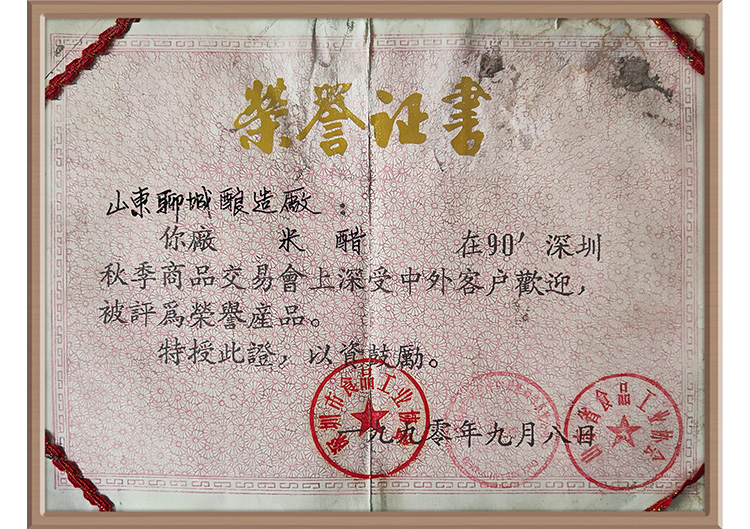 榮誉证書
山東聊城酿造廠：
你廠 米醋 在90′深圳
秋季商品交易會上深受中外客户歡迎，
被評爲榮譽産品。
特授此證，以資鼓勵。
一九九零年九月八日
深圳市食品工业协会
山东省食品工业协会